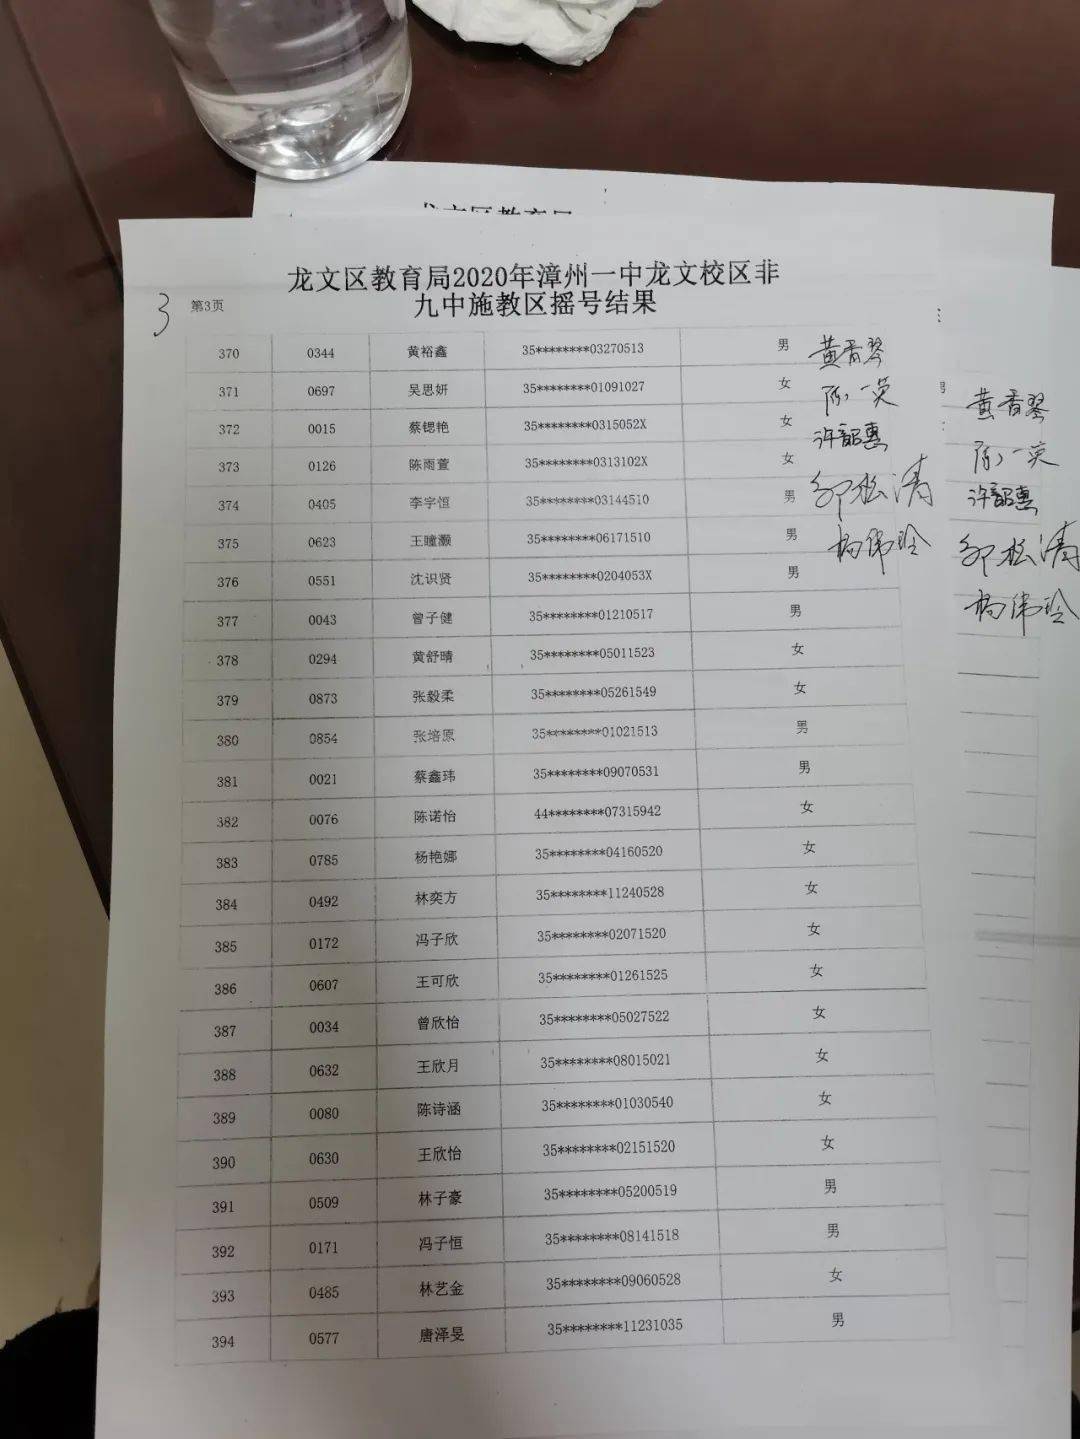 龙文区教育局2020年漳州一中龙文校区非
九中施教区摇号结果
3 第3页
370 0344 黄裕鑫 35********03270513 男
371 0697 吴思妍 35********01091027 女
372 0015 蔡锶艳 35********0315052X 女
373 0126 陈雨萱 35********0313102X 女
374 0405 李宇恒 35********03144510 男
375 0623 王瞳灏 35********06171510 男
376 0551 沈识贤 35********0204053X 男
377 0043 曾子健 35********01210517 男
378 0294 黄舒晴 35********05011523 女
379 0873 张毅柔 35********05261549 女
380 0854 张培原 35********01021513 男
381 0021 蔡鑫玮 35********09070531 男
382 0076 陈诺怡 44********07315942 女
383 0785 杨艳娜 35********04160520 女
384 0492 林奕方 35********11240528 女
385 0172 冯子欣 35********02071520 女
386 0607 王可欣 35********01261525 女
387 0034 曾欣怡 35********05027522 女
388 0632 王欣月 35********08015021 女
389 0080 陈诗涵 35********01030540 女
390 0630 王欣怡 35********02151520 女
391 0509 林子豪 35********05200519 男
392 0171 冯子恒 35********08141518 男
393 0485 林艺金 35********09060528 女
394 0577 唐泽旻 35********11231035 男
黄香琴
许韶惠
邹松清
杨伟玲
黄香琴
许韶惠
邹松清
杨伟玲